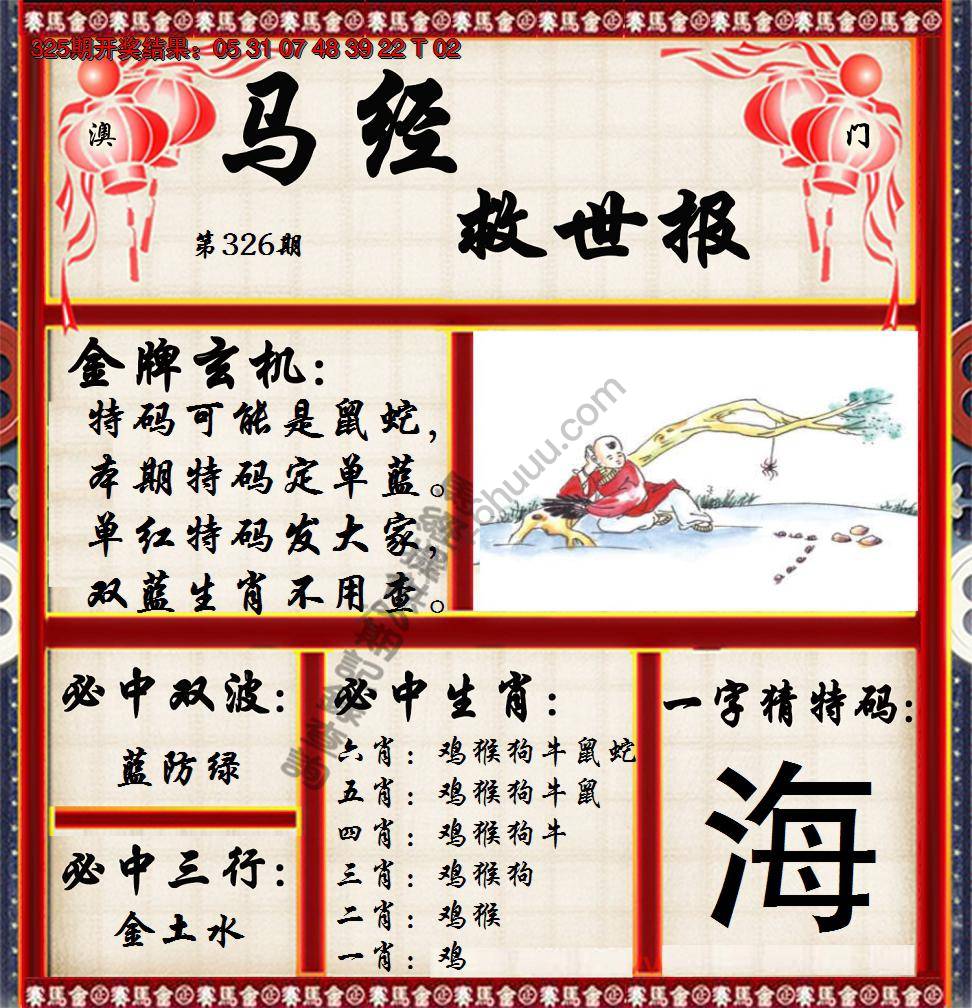 325期开奖结果：05 31 07 48 39 22 T 02
澳
门
马经
救世报
第326期
金牌玄机：
特码可能是鼠蛇，
本期特码定单蓝。
单红特码发大家，
双蓝生肖不用查。
必中双波：
蓝防绿
必中三行：
金土水
必中生肖：
六肖：鸡猴狗牛鼠蛇
五肖：鸡猴狗牛鼠
四肖：鸡猴狗牛
三肖：鸡猴狗
二肖：鸡猴
一肖：鸡
一字猜特码：
海